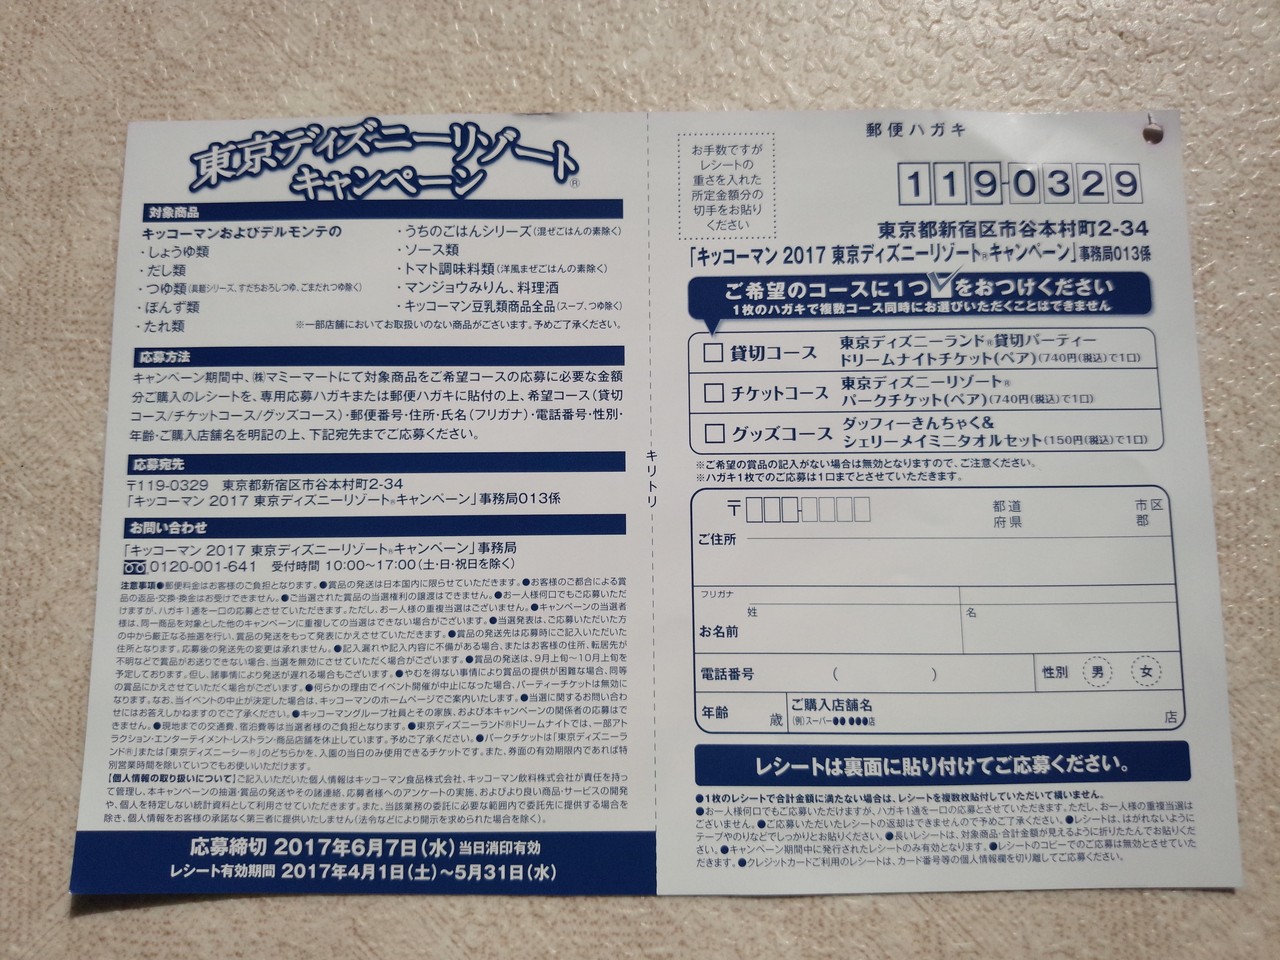 東京ディズニーリゾート®
キャンペーン
対象商品
キッコーマンおよびデルモンテの
・しょうゆ類
・だし類
・つゆ類(具麺シリーズ、すだちおろしつゆ、ごまだれつゆ除く)
・ぽんず類
・たれ類
・うちのごはんシリーズ(混ぜごはんの素除く)
・ソース類
・トマト調味料類(洋風まぜごはんの素除く)
・マンジョウみりん、料理酒
・キッコーマン豆乳類商品全品(スープ、つゆ除く)
※一部店舗においてお取扱いのない商品がございます。予めご了承ください。
応募方法
キャンペーン期間中、㈱マミーマートにて対象商品をご希望コースの応募に必要な金額
分ご購入のレシートを、専用応募ハガキまたは郵便ハガキに貼付の上、希望コース(貸切
コース/チケットコース/グッズコース)・郵便番号・住所・氏名(フリガナ)・電話番号・性別・
年齢・ご購入店舗名を明記の上、下記宛先までご応募ください。
応募宛先
〒119-0329 東京都新宿区市谷本村町2-34
「キッコーマン 2017 東京ディズニーリゾート®キャンペーン」事務局013係
お問い合わせ
「キッコーマン 2017 東京ディズニーリゾート®キャンペーン」事務局
0120-001-641 受付時間 10:00〜17:00(土・日・祝日を除く)
注意事項●郵便料金はお客様のご負担となります。●賞品の発送は日本国内に限らせていただきます。●お客様のご都合による賞
品の返品・交換・換金はお受けできません。●ご当選された賞品の当選権利の譲渡はできません。●お一人様何口でもご応募いただ
けますが、ハガキ1通を一口の応募とさせていただきます。ただし、お一人様の重複当選はございません。●キャンペーンの当選者
様は、同一商品を対象とした他のキャンペーンに重複しての当選はできない場合がございます。●当選発表は、ご応募いただいた方
の中から厳正なる抽選を行い、賞品の発送をもって発表にかえさせていただきます。●賞品の発送先は応募時にご記入いただいた
住所となります。応募後の発送先の変更は承れません。●記入漏れや記入内容に不備がある場合、またはお客様の住所、転居先が
不明などで賞品がお送りできない場合、当選を無効にさせていただく場合がございます。●賞品の発送は、9月上旬〜10月上旬を
予定しております。但し、諸事情により発送が遅れる場合もございます。●やむを得ない事情により賞品の提供が困難な場合、同等
の賞品にかえさせていただく場合がございます。●何らかの理由でイベント開催が中止になった場合、パーティーチケットは無効に
なります。なお、当イベントの中止が決定した場合は、キッコーマンのホームページでご案内いたします。●当選に関するお問い合わ
せにはお答えしかねますのでご了承ください。●キッコーマングループ社員とその家族、および本キャンペーンの関係者の応募はで
きません。●現地までの交通費、宿泊費等は当選者様のご負担となります。●東京ディズニーランド®ドリームナイトでは、一部アト
ラクション・エンターテイメント・レストラン・商品店舗を休止しています。予めご了承ください。●パークチケットは「東京ディズニーラ
ンド®」または「東京ディズニーシー®」のどちらかを、入園の当日のみ使用できるチケットです。また、券面の有効期限内であれば特
別営業時間を除いていつでもお使いいただけます。
【個人情報の取り扱いについて】ご記入いただいた個人情報はキッコーマン食品株式会社、キッコーマン飲料株式会社が責任を持っ
て管理し、本キャンペーンの抽選・賞品の発送やその諸連絡、応募者様へのアンケートの実施、およびより良い商品・サービスの開発
や、個人を特定しない統計資料として利用させていただきます。また、当該業務の委託に必要な範囲内で委託先に提供する場合を
除き、個人情報をお客様の承諾なく第三者に提供いたしません(法令などにより開示を求められた場合を除く)。
応募締切 2017年6月7日(水)当日消印有効
レシート有効期間 2017年4月1日(土)〜5月31日(水)
キリトリ
お手数ですが
レシートの
重さを入れた
所定金額分の
切手をお貼り
ください
郵便ハガキ
119-0329
東京都新宿区市谷本村町2-34
「キッコーマン 2017 東京ディズニーリゾート®キャンペーン」事務局013係
ご希望のコースに1つ✓をおつけください
1枚のハガキで複数コース同時にお選びいただくことはできません
□貸切コース 東京ディズニーランド®貸切パーティー
ドリームナイトチケット(ペア)(740円(税込)で1口)
□チケットコース 東京ディズニーリゾート®
パークチケット(ペア)(740円(税込)で1口)
□グッズコース ダッフィーきんちゃく&
シェリーメイミニタオルセット(150円(税込)で1口)
※ご希望の賞品の記入がない場合は無効となりますので、ご注意ください。
※ハガキ1枚でのご応募は1口までとさせていただきます。
〒 都道 市区
府県 郡
ご住所
フリガナ
姓 名
お名前
電話番号 ( ) 性別 男 女
年齢 歳 ご購入店舗名
(例)スーパー●● ●●●店
店
レシートは裏面に貼り付けてご応募ください。
●1枚のレシートで合計金額に満たない場合は、レシートを複数枚貼付していただいて構いません。
●お一人様何口でもご応募いただけますが、ハガキ1通を一口の応募とさせていただきます。ただし、お一人様の重複当選は
ございません。●ご応募いただいたレシートの返却はできませんので予めご了承ください。●レシートは、はがれないように
テープやのりなどでしっかりとお貼りください。●長いレシートは、対象商品・合計金額が見えるように折りたたんでお貼りくだ
さい。●キャンペーン期間中に発行されたレシートのみ有効となります。●レシートのコピーでのご応募は無効とさせていた
だきます。●クレジットカードご利用のレシートは、カード番号等の個人情報欄を切り離してご応募ください。